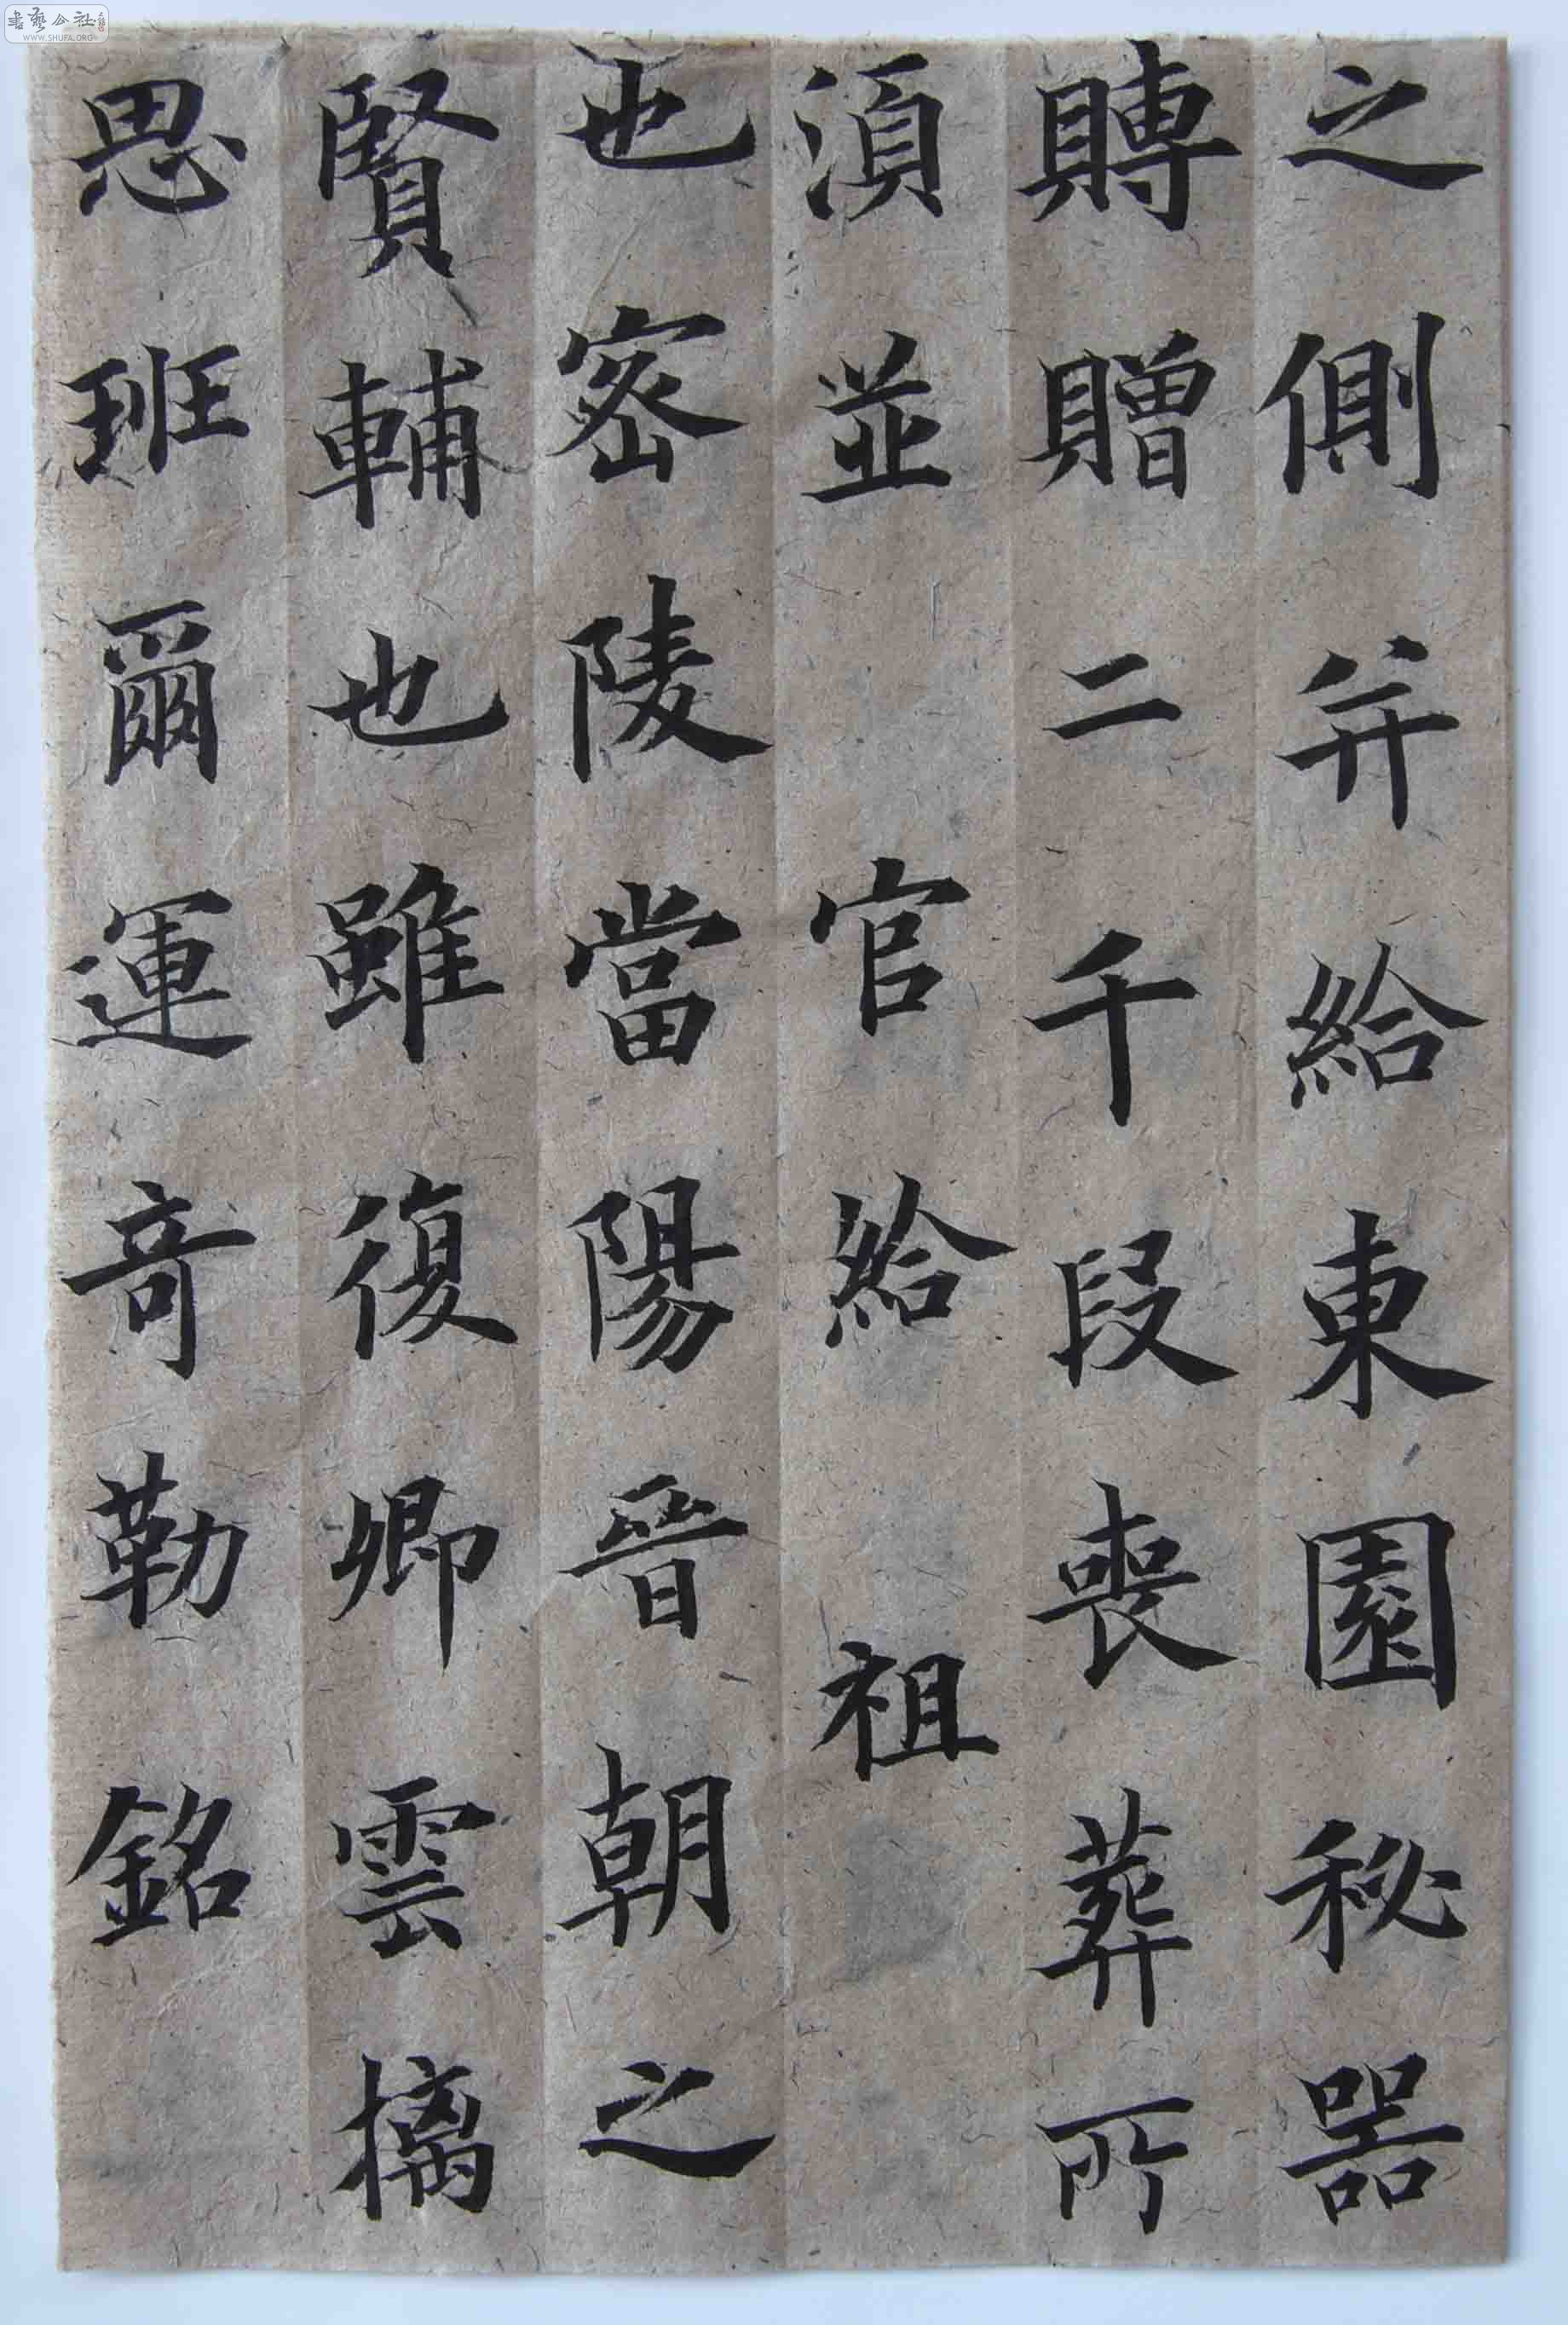 之側并給東園秘器
賻贈二千段喪葬所
須並官給祖
也密陵當陽晉朝之
賢輔也雖復卿雲摛
思班爾運奇勒銘
書藝公社
WWW.SHUFA.ORG